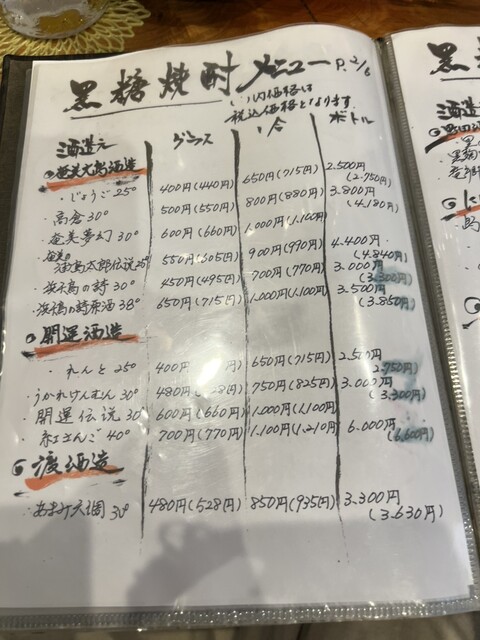 黒糖焼酎 メニュー P.2/6
( )内価格は
税込価格となります
酒造元 グラス 1合 ボトル
奄美大島酒造
・じょうご 25° 400円(440円) 650円(715円) 2.500円(2.750円)
・高倉 30° 500円(550円) 800円(880円) 3.800円(4.180円)
・奄美夢幻 30° 600円(660円) 1.000円(1.100円)
・奄美の浦島太郎伝説25° 550円(605円) 900円(990円) 4.400円(4.840円)
・浜千鳥の詩 30° 450円(495円) 700円(770円) 3.000円(3.300円)
・浜千鳥の詩原酒 38° 650円(715円) 1.000円(1.100円) 3.500円(3.850円)
開運酒造
・れんと 25° 400円 円) 650円(715円) 2.500円(2.750円)
・うかれけんむん 30° 480円( 28円) 750円(825円) 3.000円(3.300円)
・開運伝説 30° 600円(660円) 1.000円(1.100円)
・紅さんご 40° 700円(770円) 1.100円(1.210円) 6.000円(6.600円)
渡酒造
・あまみ六調 30° 480円(528円) 850円(935円) 3.300円(3.630円)
黒
酒造
・黒